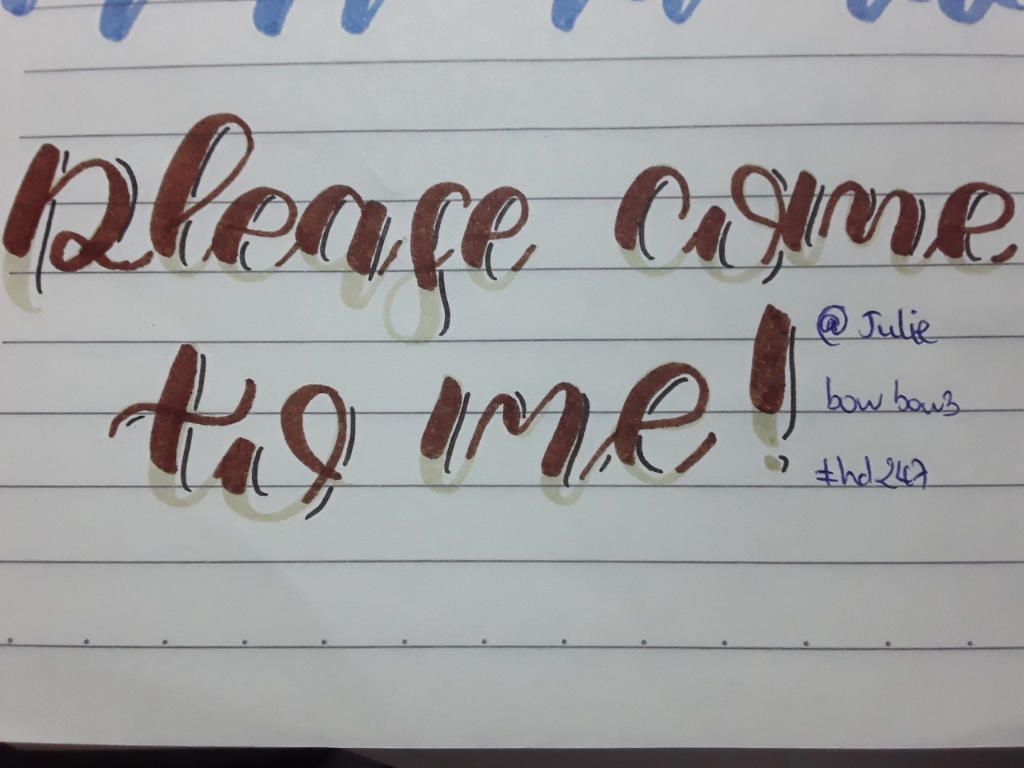 please come
to me!
@ Julie
bow bow3
#hd247